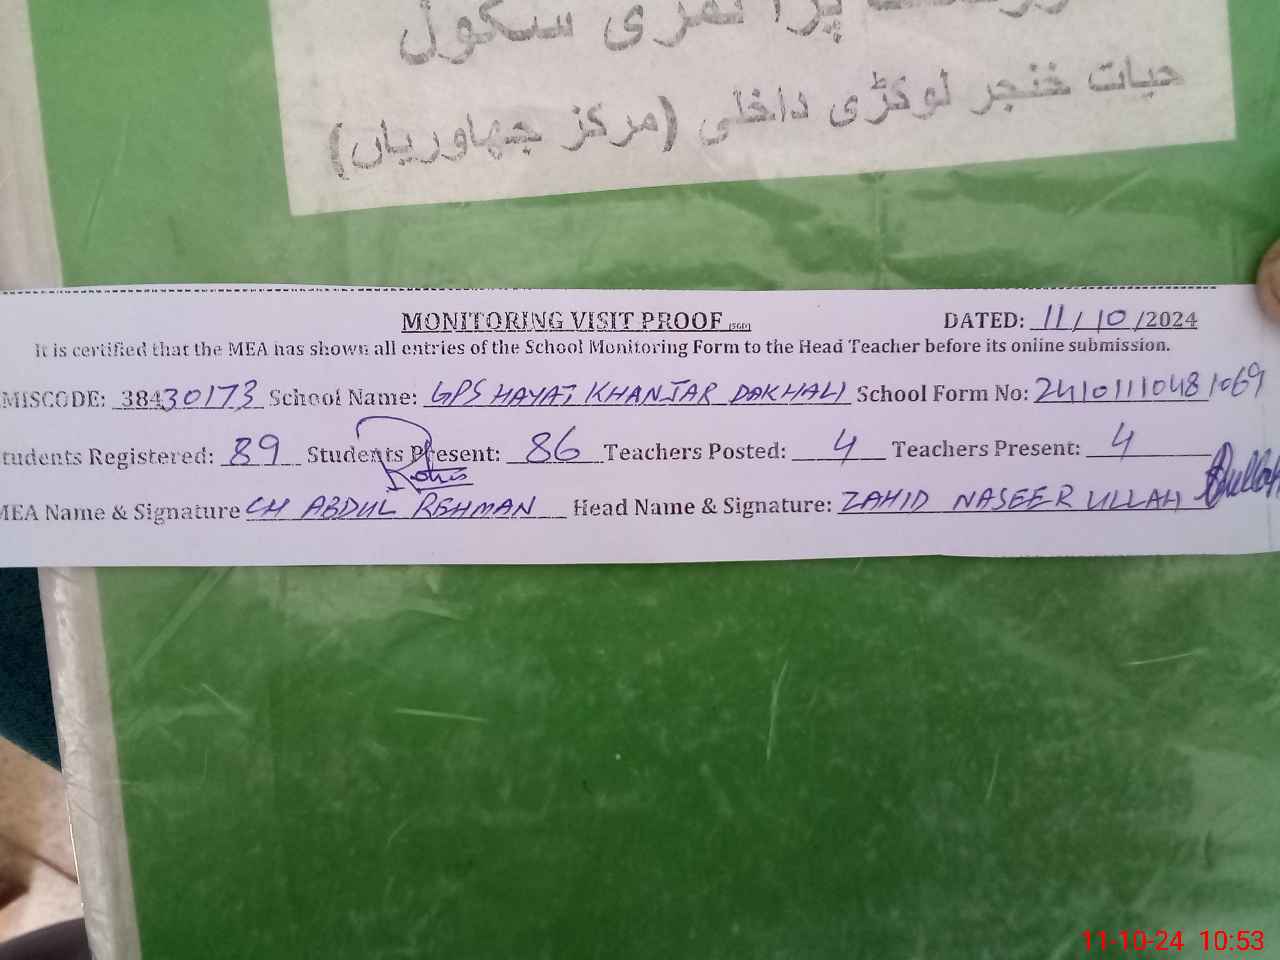 پرائمری سکول
حیات خنجر لوکڑی داخلی (مرکز جھاوریاں)
MONITORING VISIT PROOF (SGD) DATED: 11/10/2024
It is certified that the MEA has shown all entries of the School Monitoring Form to the Head Teacher before its online submission.
MISCODE: 38430173 School Name: GPS HAYAT KHANJAR DAKHALI School Form No: 24101110481069
tudents Registered: 89 Students Present: 86 Teachers Posted: 4 Teachers Present: 4
MEA Name & Signature CH ABDUL REHMAN Head Name & Signature: ZAHID NASEER ULLAH
11-10-24 10:53